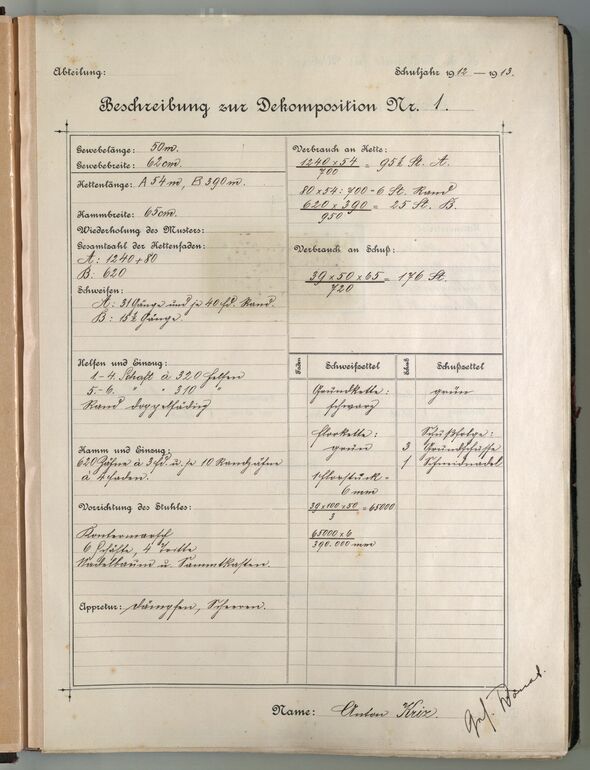 Abteilung:
Schuljahr 1912 — 1913.
Beschreibung zur Dekomposition Nr. 1.
Gewebelänge: 50m.
Gewebebreite: 62cm.
Kettenlänge: A 54m, B 390m.
Kammbreite: 65cm.
Wiederholung des Musters:
Gesamtzahl der Kettenfaden:
A: 1240+80
B: 620
Schweifen:
A: 31 Gänge und je 40 fd. Rand.
B: 15½ Gänge.
Helfen und Einzug:
1-4. Schaft à 320 Helfen
5.-6. " " 310 "
Rand doppelfädig
Kamm und Einzug:
620 Zähne à 3 fd. u. je 10 Randzähne
à 4 Faden.
Vorrichtung des Stuhles:
Kontermarsch
6 Schäfte, 4 Tritte
Nadelbaum u. Sammtkasten.
Appretur: Dämpfen, Scheeren.
Verbrauch an Kette:
1240 x 54 / 700 = 95½ St. A.
80 x 54 : 700 - 6 St. Rand
620 x 390 / 950 = 25 St. B.
Verbrauch an Schuß:
39 x 50 x 65 / 720 = 176 St.
Faden Schweifzettel Schuß Schußzettel
Grundkette: grün
schwarz
Florkette: Schußfolge:
grün 3 Grundschüsse
1 Schneidnadel
1 Florstück =
6 mm
39 x 100 x 50 / 3 = 65000
65000 x 6
390.000 mm
Name: Anton Kriz.
Ges. Donat.